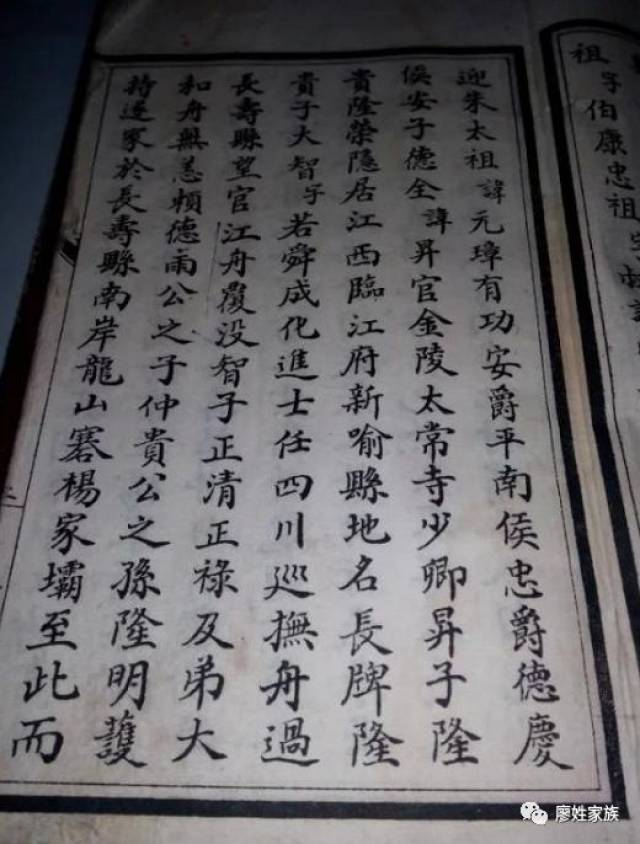 祖子伯康忠祖字
迎朱太祖諱元璋有功安爵平南侯忠爵德慶
侯安子德全諱昇官金陵太常寺少卿昇子隆
貴隆榮隱居江西臨江府新喻縣地名長牌隆
貴子大智子若舜成化進士任四川巡撫舟過
長壽縣望官江舟覆没智子正清正祿及弟大
和舟無恙賴德雨公之子仲貴公之孫隆明護
持遂家於長壽縣南岸龍山寨楊家壩至此而
廖姓家族